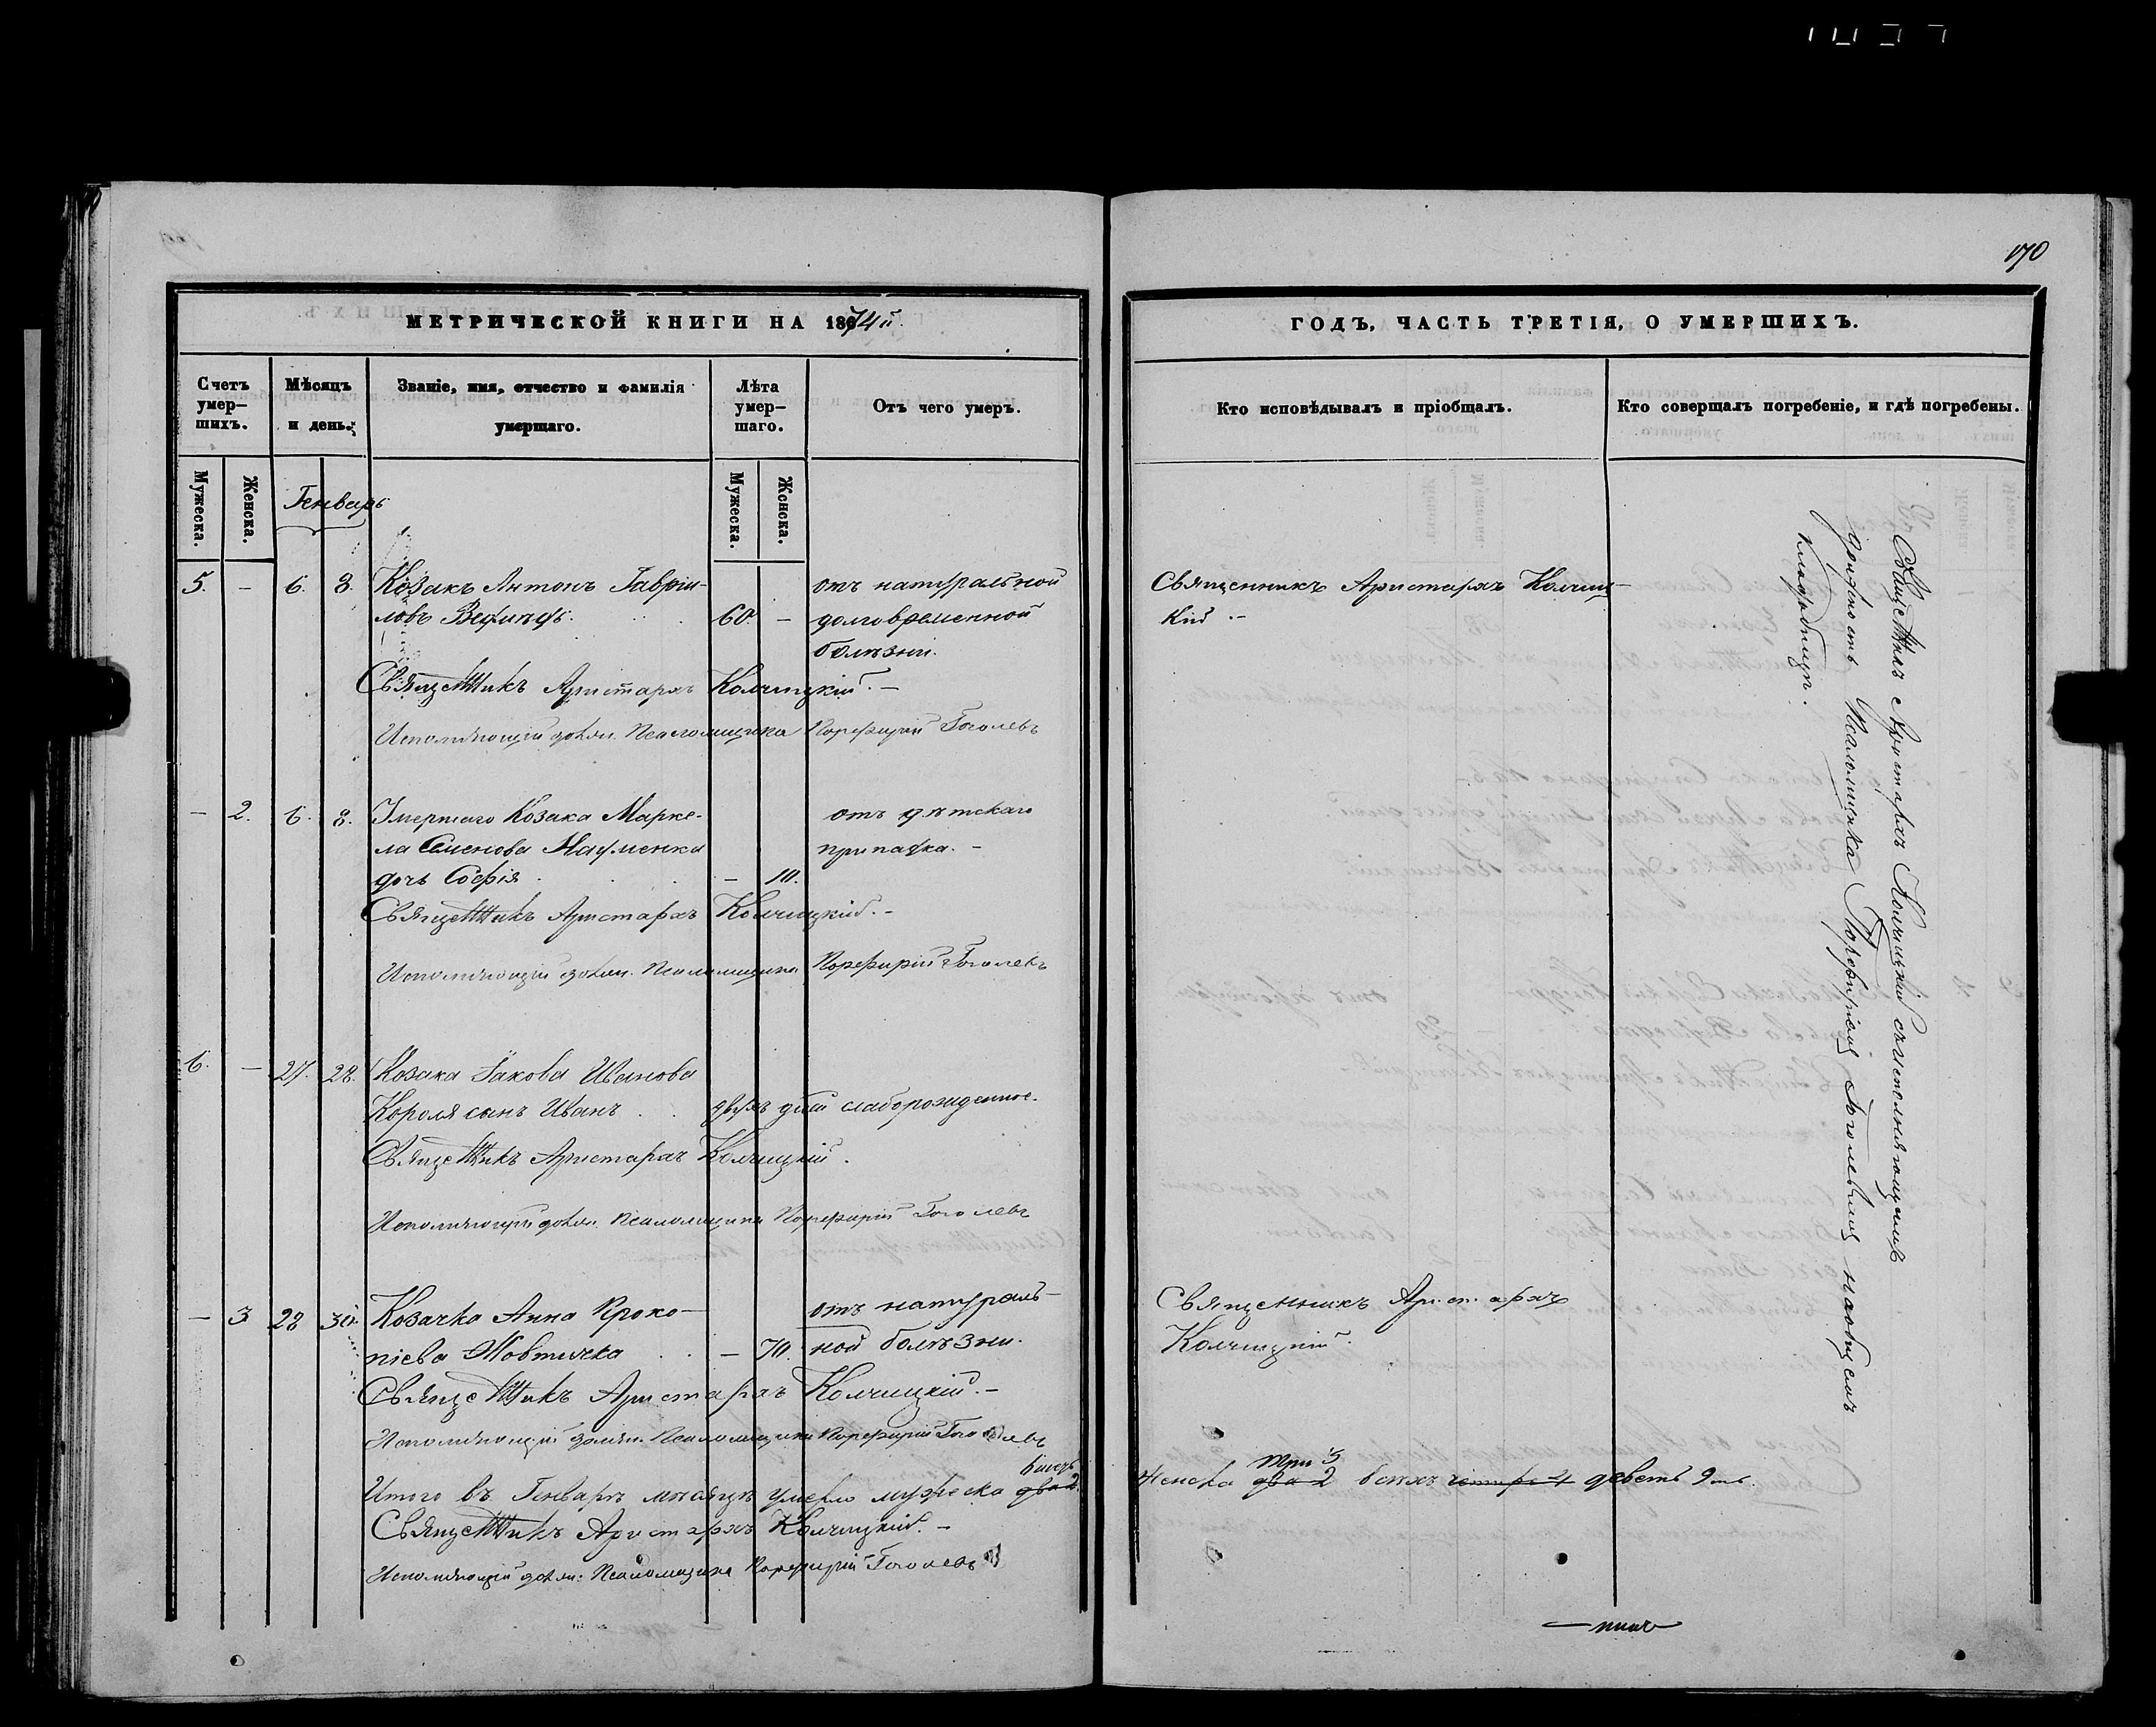 170
МЕТРИЧЕСКОЙ КНИГИ НА 1874й.
Счетъ умер-шихъ.
Мѣсяцъ и день.
Званіе, имя, отчество и фамилія умершаго.
Лѣта умер-шаго.
Отъ чего умеръ.
Мужеска.
Женска.
Мужеска.
Женска.
Генварь
5. - 6. 8. Козакъ Антонъ Гаврии- отъ натуральной
ловъ 60. - долговременной
болѣзни.
Священникъ Аристархъ Колчицкій. -
Исполняющій должн. Псаломщика Порфирій Гоголевъ
- 2. 6. 8. Умершаго Козака Марке- отъ дѣтскаго
ла Семенова Науменка припадка. -
дочь Софія - 10.
Священникъ Аристархъ Колчицкій. -
Исполняющій должн. Псаломщика Порфирій Гоголевъ
6. - 27. 28. Козака Іакова Иванова
Короля сынъ Иванъ двухъ дній слаборожденное.
Священникъ Аристархъ Колчицкій.
Исполняющій должн. Псаломщика Порфирій Гоголевъ
- 3 28 30. Козачка Анна Проко- отъ натураль-
піева Жовтячка - 70. ной болѣзни.
Священникъ Аристархъ Колчицкій. -
Исполняющій должн. Псаломщика Порфирій Гоголевъ
6 шесть
Итого въ Генварѣ мѣсяцѣ умерло мужеска два 2
Священникъ Аристархъ Колчицкій. -
Исполняющій должн: Псаломщика Порфирій Гоголевъ
ГОДЪ, ЧАСТЬ ТРЕТІЯ, О УМЕРШИХЪ.
Кто исповѣдывалъ и пріобщалъ.
Кто совершалъ погребеніе, и гдѣ погребены.
Священникъ Аристархъ Колчиц-
кій. -
Священникъ Аристархъ Колчицкій съ исполняющимъ
должность Псаломщика Порфиріемъ Гоголевымъ на общемъ
кладбищѣ.
Священникъ Аристархъ
Колчицкій.
три 3
женска два 2 всѣхъ четыре 4 девять 9ть.